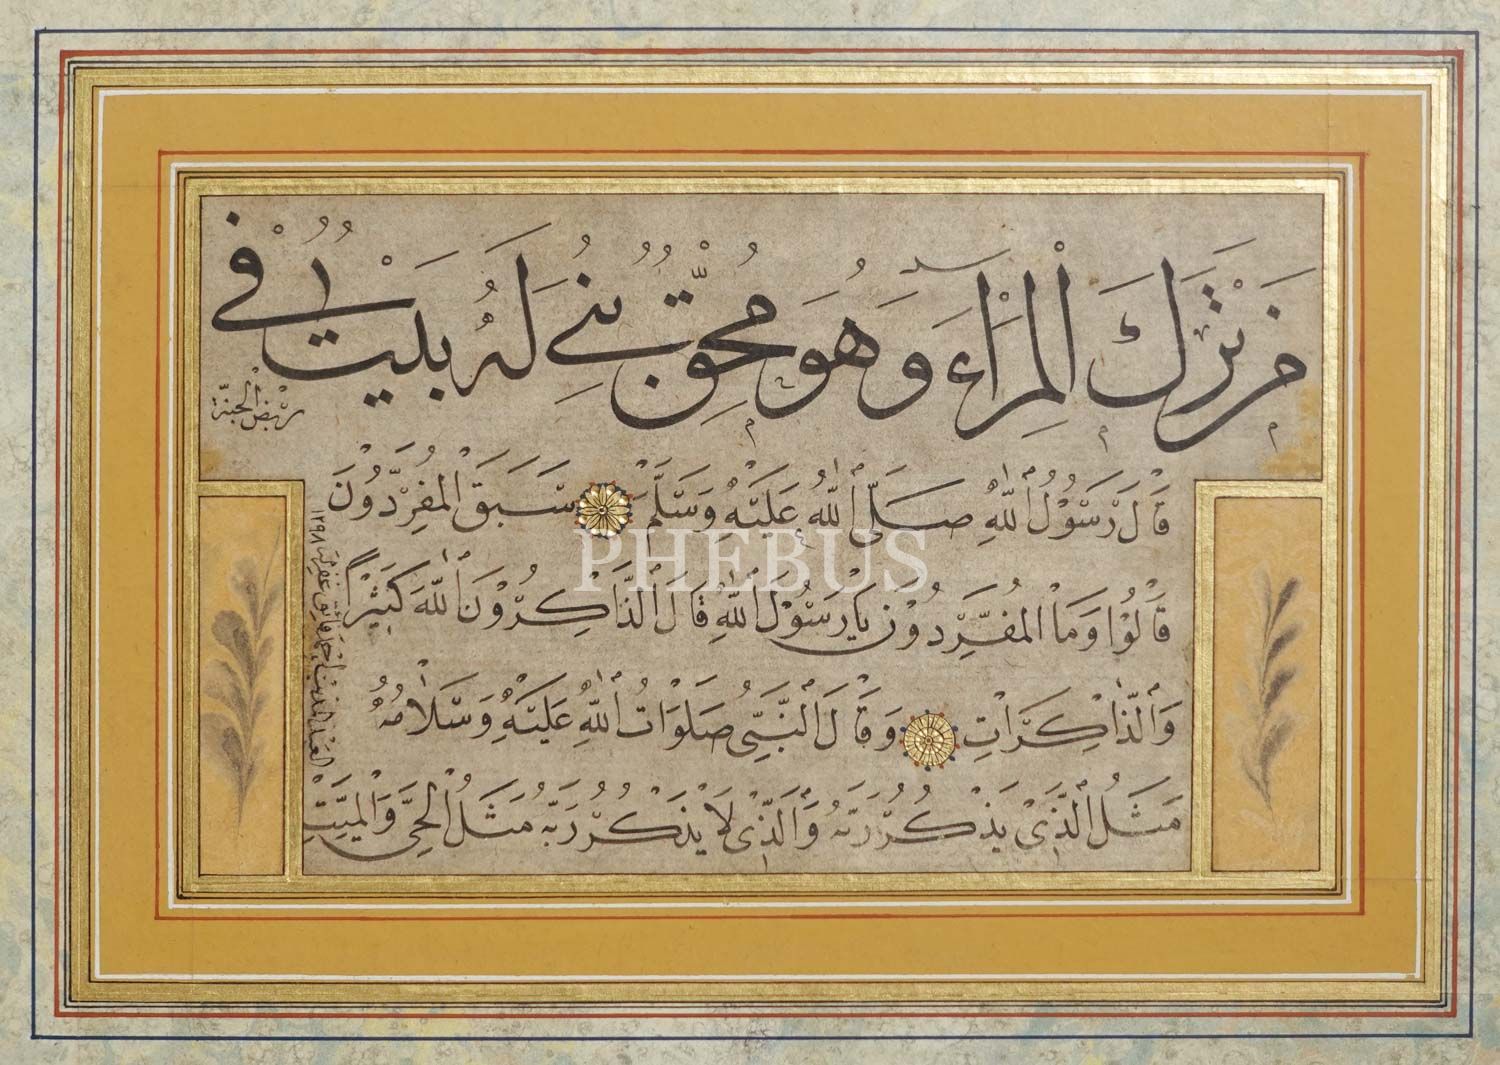 مَنْ تَرَكَ الْمِرَاءَ وَهُوَ مُحِقٌّ بُنِيَ لَهُ بَيْتٌ فِي
رَبَضِ الْجَنَّةِ
قَالَ رَسُولُ اللّٰهِ صَلَّى اللّٰهُ عَلَيْهِ وَسَلَّمَ سَبَقَ الْمُفَرِّدُونَ
قَالُوا وَمَا الْمُفَرِّدُونَ يَا رَسُولَ اللّٰهِ قَالَ الذَّاكِرُونَ اللّٰهَ كَثِيْرًا
وَالذَّاكِرَاتِ وَقَالَ النَّبِيُّ صَلَوَاتُ اللّٰهِ عَلَيْهِ وَسَلَامُهُ
مَثَلُ الَّذِي يَذْكُرُ رَبَّهُ وَالَّذِي لَا يَذْكُرُ رَبَّهُ مَثَلُ الْحَيِّ وَالْمَيِّتِ
العبد المذنب فائق غفر له ١٢٩٨
PHEBUS